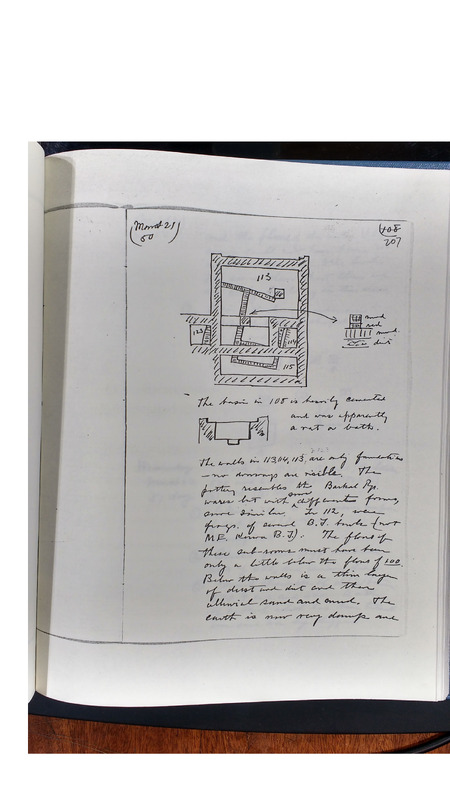 50
207
113
mud
red
mud
dirt
123
114
115
The basin in 108 is heavily cemented
and was apparently
a vat or bath.
The walls in 113, 114, 115, are only foundations
— no doorways are visible. The
pottery resembles the Barkal Pyr.
wares but with some different forms,
some similar. In 112, were
frags. of several B.T. (not
M.E. Kerma B.T.). The floors of
these sub-rooms must have been
only a little below the floor of 100.
Below the walls is a thin layer
of dust and dirt and then
alluvial sand and mud. The
earth is now very damp and